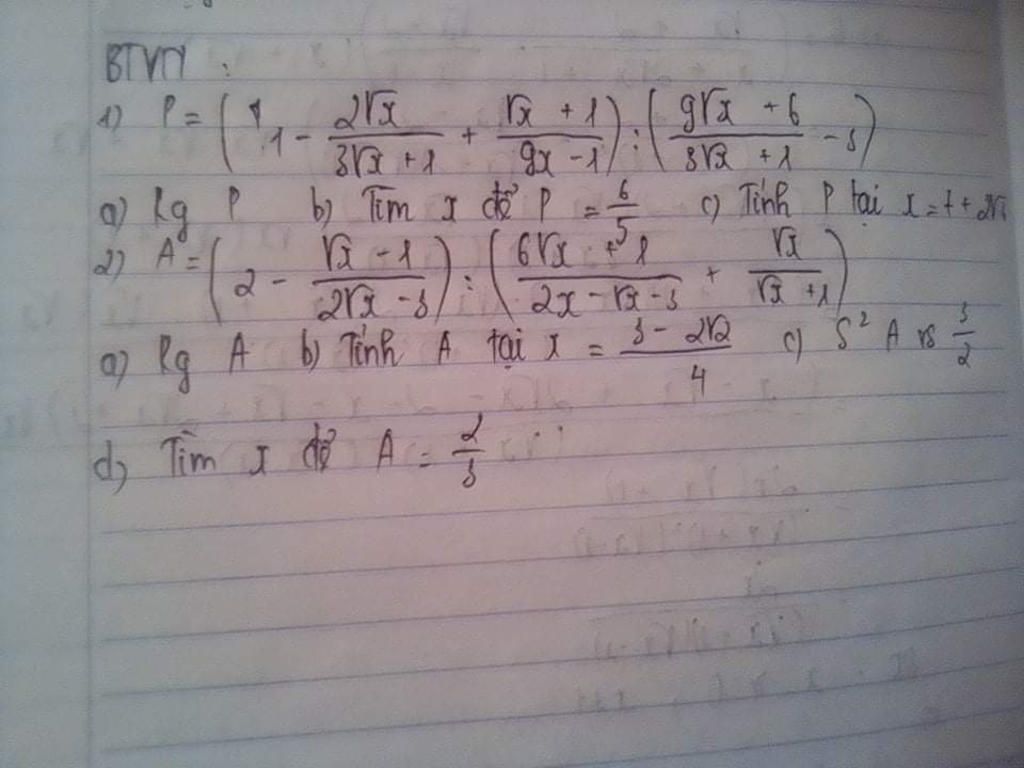 BTVN :
1) P = ( 1 - \frac{2√x}{3√x + 1} + \frac{√x + 1}{9x - 1} ) : ( \frac{9√x + 6}{3√x + 1} - 3 )
a) Rg P b) Tìm x để P = \frac{6}{5} c) Tính P tại x =
2) A = ( 2 - \frac{√x - 1}{2√x - 3} ) : ( \frac{6√x + 1}{2x - √x - 3} + \frac{√x}{√x + 1} )
a) Rg A b) Tính A tại x = \frac{3 - 2√2}{4} c) S² A vs \frac{3}{2}
d) Tìm x để A = \frac{2}{3}